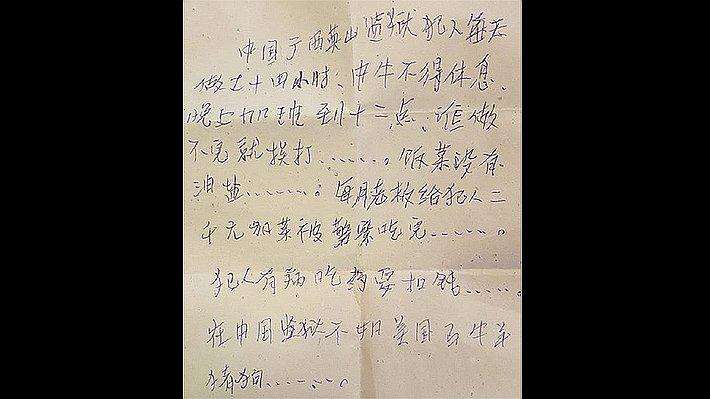 中国广西英山监狱犯人每天
做工十四小时、中午不得休息、
晚上加班到十二点、谁做
不完就挨打……。饭菜没有
油盐……。每月老板给犯人二
千元加菜被警察吃完……。
犯人有病吃药要扣钱……。
在中国监狱不如美国 牛羊
猪狗……。